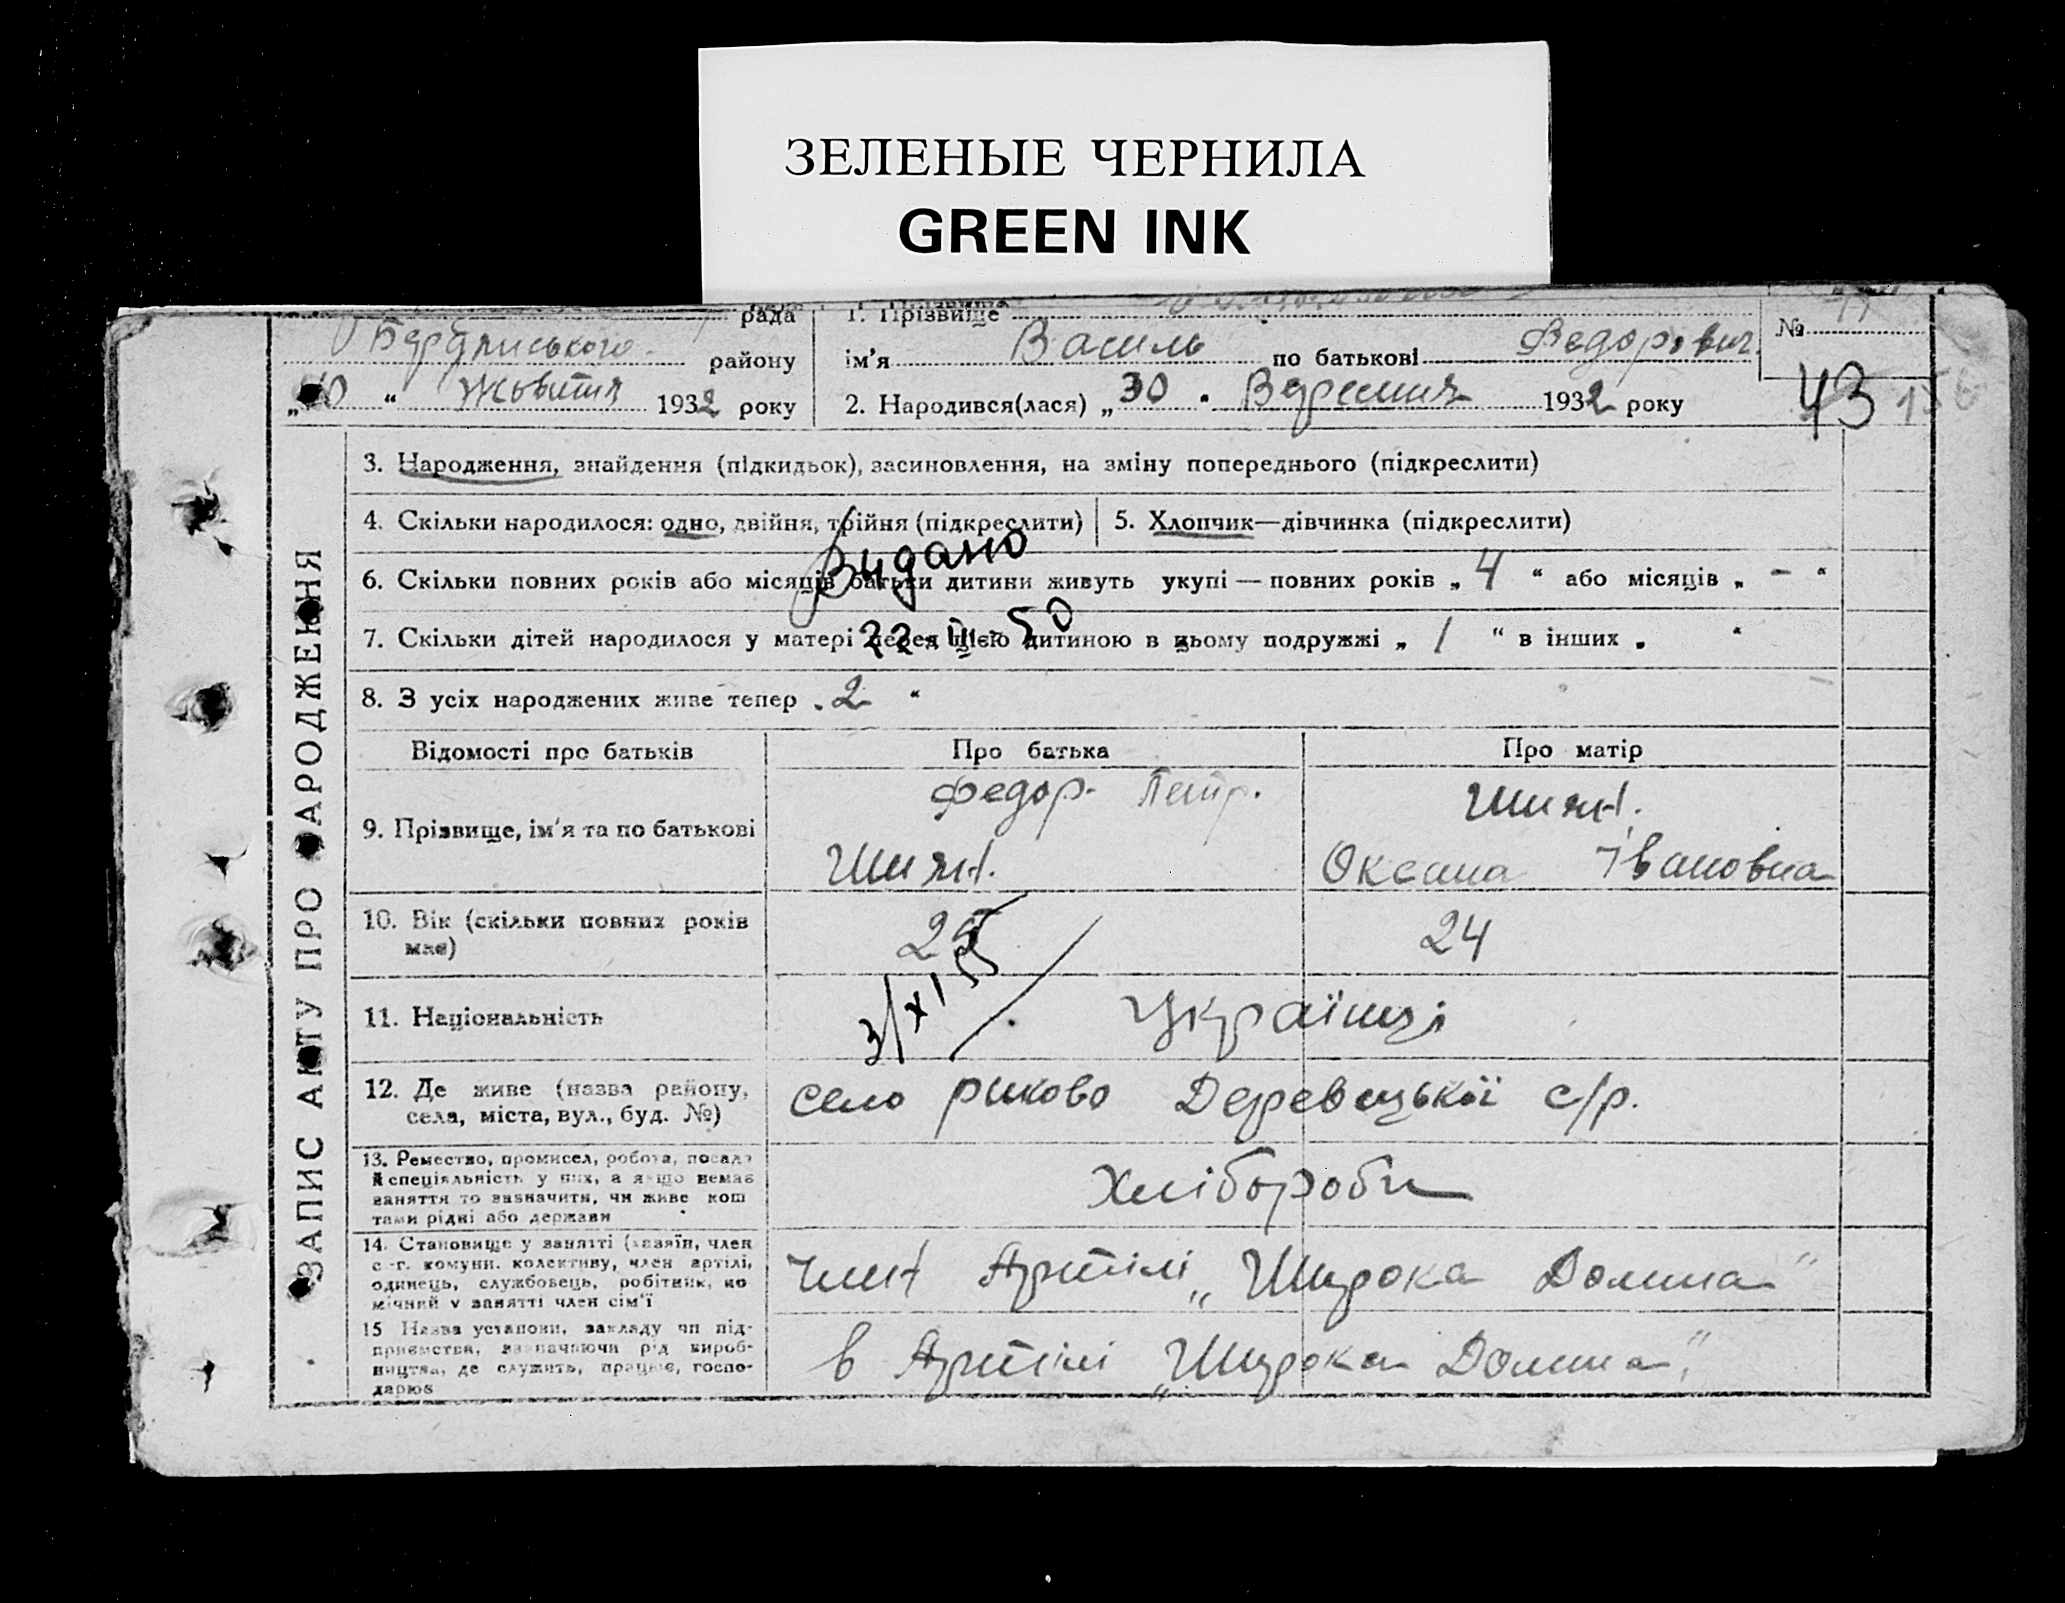 ЗЕЛЕНЫЕ ЧЕРНИЛА
GREEN INK
рада
1. Прізвище
району
ім'я Василь по батькові Федорович
№
„10“ Жовтня 1932 року
2. Народився(лася) „30“ Вересня 1932 року
43
ЗАПИС АКТУ ПРО НАРОДЖЕННЯ
3. Народження, знайдення (підкидьок), засиновлення, на зміну попереднього (підкреслити)
4. Скільки народилося: одно, двійня, трійня (підкреслити)
5. Хлопчик—дівчинка (підкреслити)
Видано
6. Скільки повних років або місяців батьки дитини живуть укупі — повних років „4“ або місяців „-“
7. Скільки дітей народилося у матері перед цією дитиною в цьому подружжі „1“ в інших „ “
8. З усіх народжених живе тепер „2“
Відомості про батьків
Про батька
Про матір
9. Прізвище, ім'я та по батькові
Федор. Петр.
Шиян.
Шиян.
Оксана Івановна
10. Вік (скільки повних років має)
25
24
3/XI 55
11. Національність
Українці
12. Де живе (назва району,
села, міста, вул., буд. №)
село Риково Деревецької с/р.
13. Ремество, промисел, робота, посада
й спеціяльність у них, а якщо немає
заняття то зазначити, чи живе кош
тами рідні або держави
Хлібороби
14. Становище у занятті (хазяїн, член
с.-г. комуни, колективу, член артілі,
одинець, службовець, робітник, по
мічний у занятті член сім'ї
член Артілі „Широка Долина“
15 Назва установи, закладу чи під-
приємства, зазначаючи рід вироб-
ництва, де служить, працює, госпо-
дарює
в Артілі „Широка Долина“